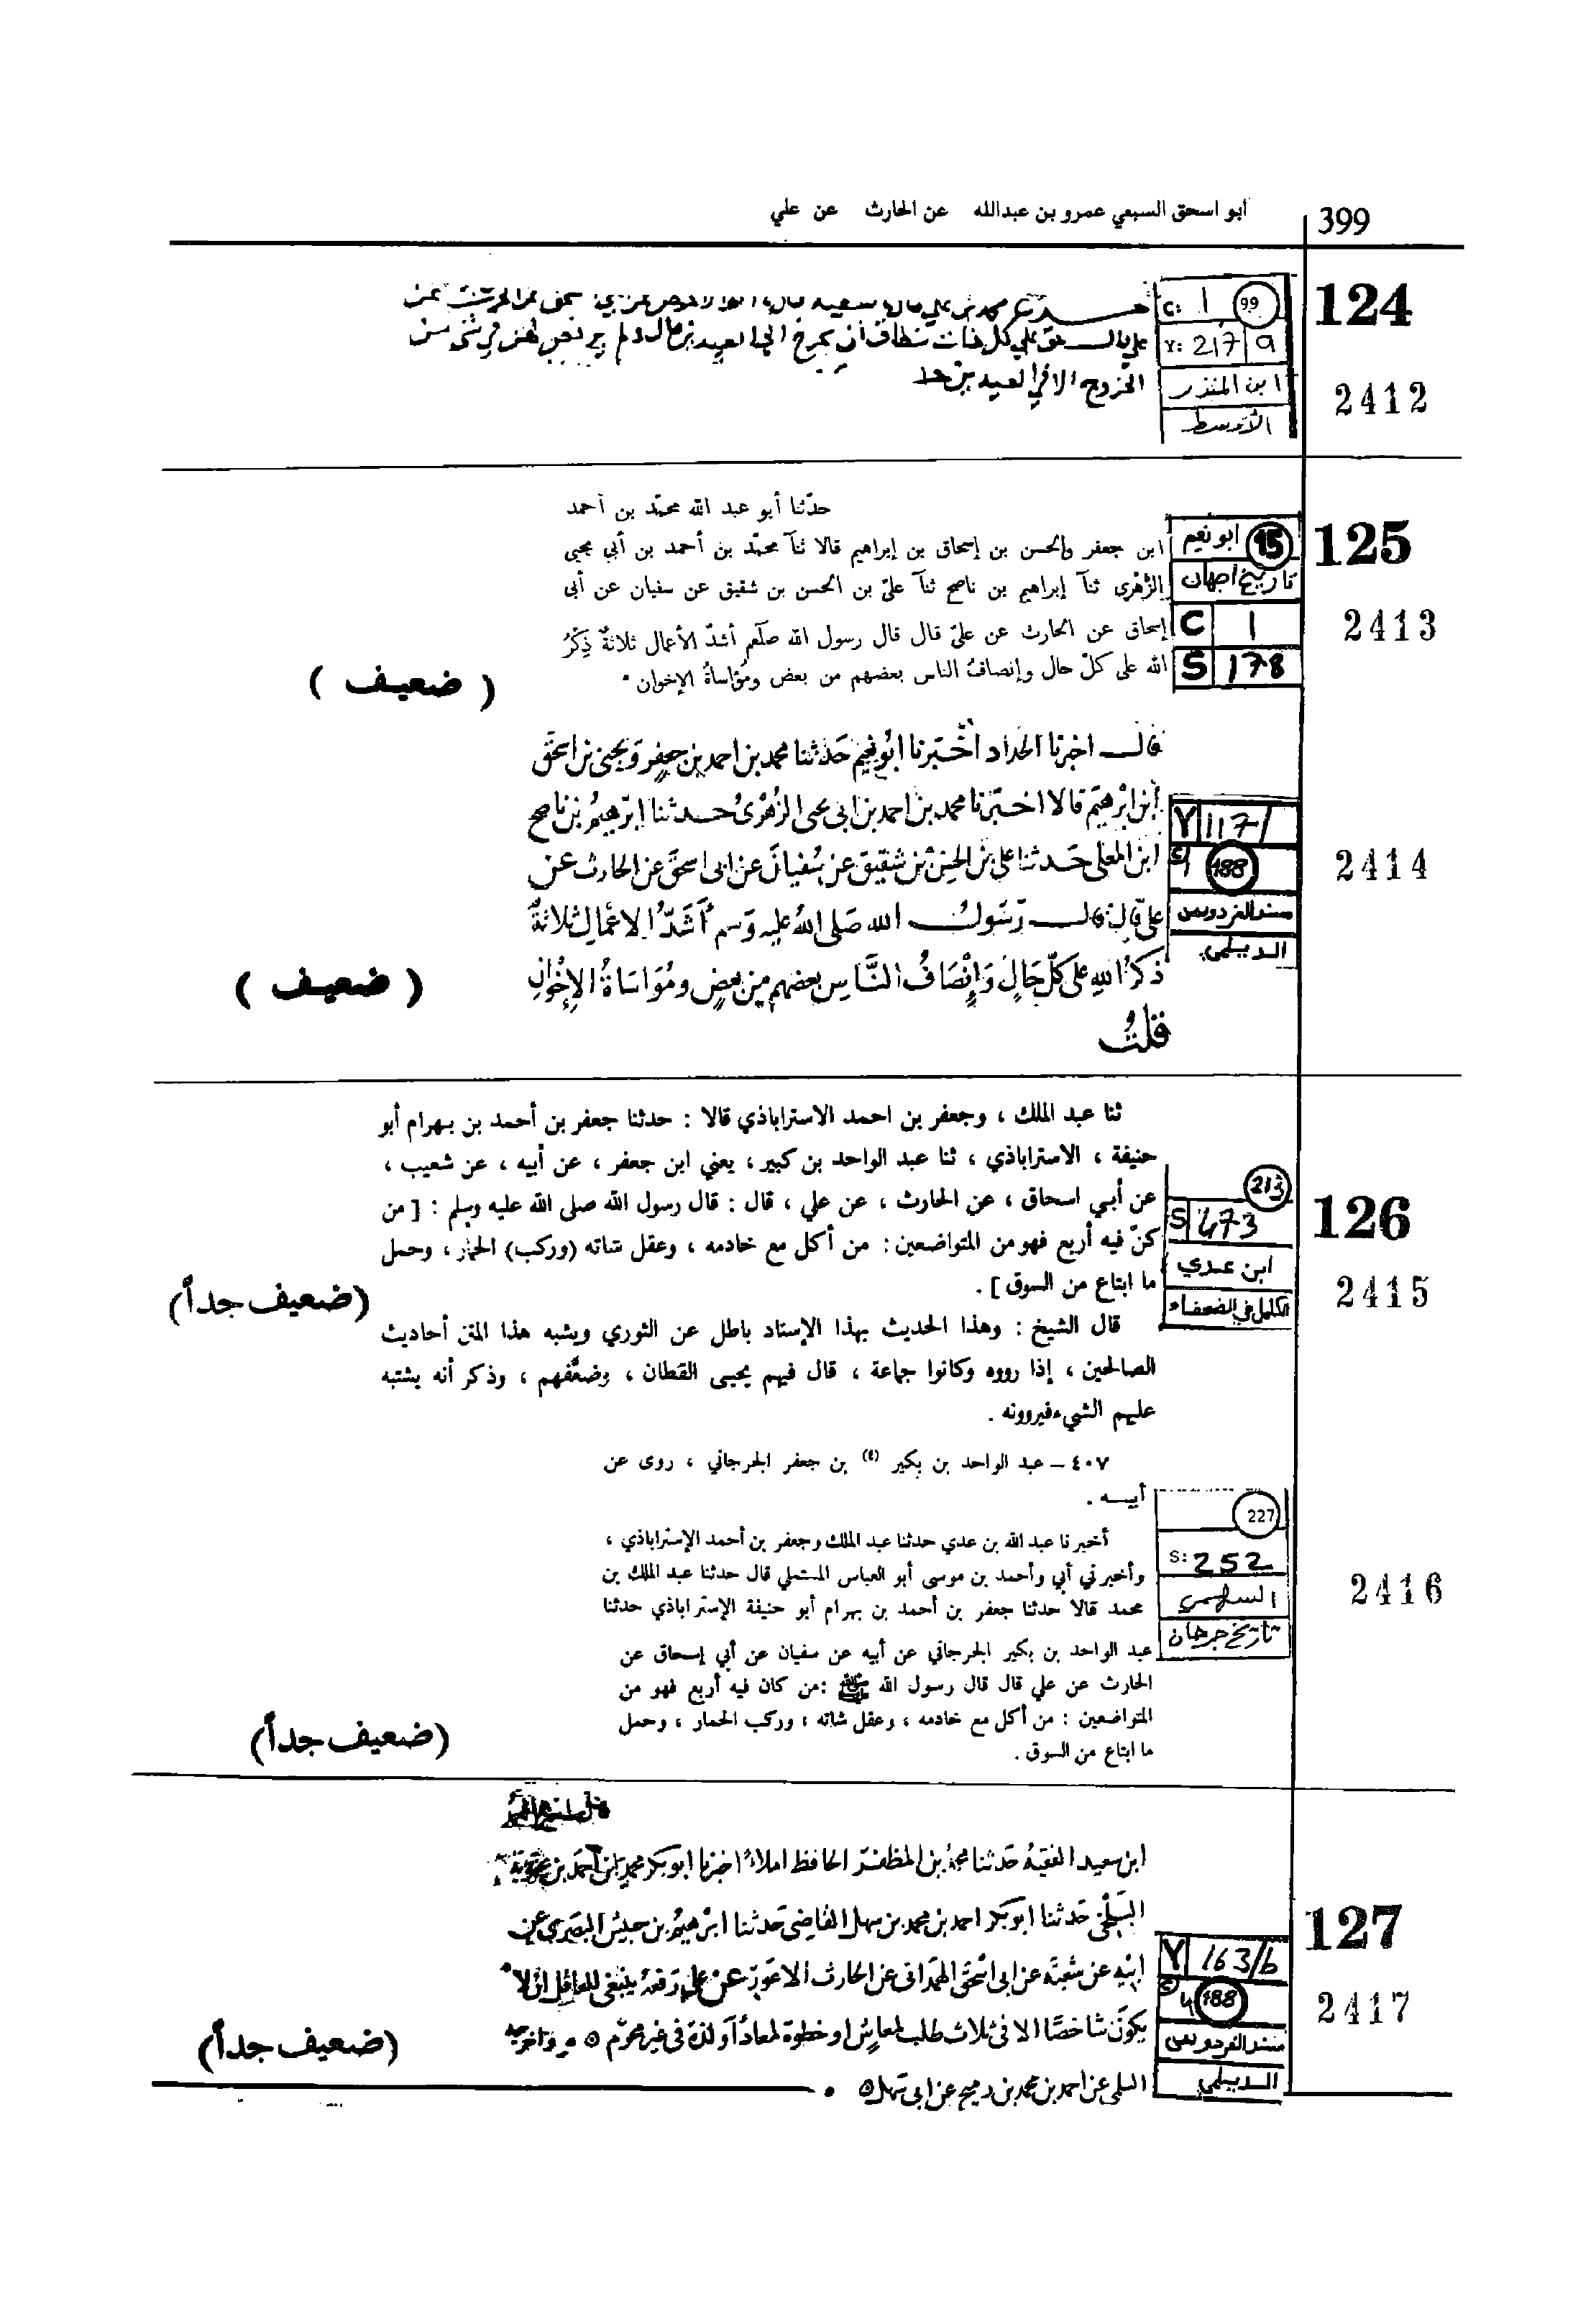 399
أبو اسحق السبعي عمرو بن عبدالله عن الحارث عن علي
124
2412
C: 1 99
Y: 217 9
ابن المنذر
الأوسط
محمد بن علي
علي قال حق علي كل ذات نطاق أن يخرج الى العيدين
الخروج الا في العيدين
125
2413
ابو نعيم 15
تاريخ اصبهان
C 1
S 178
حدّثنا أبو عبد الله محمّد بن أحمد
ابن جعفر والحسن بن إسحاق بن إبراهيم قالا ثنآ محمّد بن أحمد بن أبي يحيى
الزُّهْرى ثنآ إبراهيم بن ناصح ثنآ علىّ بن الحسن بن شقيق عن سفيان عن أبى
إسحاق عن الحارث عن علىّ قال قال رسول الله صلّعم أشدّ الأعمال ثلاثةٌ ذِكْرُ
الله على كلّ حال وإنصافُ الناس بعضهم من بعض ومُؤاساةُ الإخوان.
( ضعيف )
2414
Y 117/
C 1 188
مسند الفردوس
الديلمي
قال اخبرنا الحداد أخْبَرنا ابُو نعيم حَدثنا محمد بن احمد بن جعفر ويحيى بن اسحق
ابن ابرْهيَم قالا اخبَرنا محمد بن احمد بن ابى يحيى الزُهْرىُ حدثنا ابرَهيمُ بن ناصح
ابن المعلى حَدثنا على بن الحسَن بن شقيق عن سُفيانَ عن ابى اسحَق عن الحارث عن
علىّ قال قال رَسُولُ الله صَلى اللهُ عليه وَسم أَشَدُّ الاعْمالِ ثلاثةٌ
ذكرُ اللهِ على كلّ حَالٍ وَإِنْصَافُ النَّاسِ بعضهم مِن بعضٍ ومُوَاسَاةُ الإِخْوانِ
قلتُ
( ضعيف )
126
2415
213
S 473
ابن عدي
الكامل في الضعفاء
ثنا عبد الملك ، وجعفر بن احمد الاستراباذي قالا : حدثنا جعفر بن أحمد بن بهرام أبو
حنيفة ، الاستراباذي ، ثنا عبد الواحد بن كبير ، يعني ابن جعفر ، عن أبيه ، عن شعيب ،
عن أبي اسحاق ، عن الحارث ، عن علي ، قال : قال رسول الله صلى الله عليه وسلم : [ من
كنّ فيه أربع فهو من المتواضعين : من أكل مع خادمه ، وعقل شاته (وركب) الحمار ، وحمل
ما ابتاع من السوق ] .
(ضعيف جداً)
قال الشيخ : وهذا الحديث بهذا الإسناد باطل عن الثوري ويشبه هذا المتن أحاديث
الصالحين ، إذا رووه وكانوا جماعة ، قال فيهم يحيى القطان ، وضعَّفهم ، وذكر أنه يشتبه
عليهم الشيء فيروونه .
٤٠٧ – عبد الواحد بن بكير (٤) بن جعفر الجرجاني ، روى عن
أبيه .
2416
227
S: 252
السهمي
تاريخ جرجان
أخبرنا عبد الله بن عدي حدثنا عبد الملك وجعفر بن أحمد الإستراباذي ،
وأخبرني أبي وأحمد بن موسى أبو العباس المستملي قال حدثنا عبد الملك بن
محمد قالا حدثنا جعفر بن أحمد بن بهرام أبو حنيفة الإستراباذي حدثنا
عبد الواحد بن بكير الجرجاني عن أبيه عن سفيان عن أبي إسحاق عن
الحارث عن علي قال قال رسول الله ﷺ : من كان فيه أربع فهو من
المتواضعين : من أكل مع خادمه ، وعقل شاته ، وركب الحمار ، وحمل
ما ابتاع من السوق .
(ضعيف جداً)
127
2417
Y 163/b
188
مسند الفردوس
الديلمي
ابن سعيد الفقيهُ حَدثنا محمدُ بن المظفر الحافظ املاءً اخبرنا ابو بكر محمد بن احمَد بن
البَلْخى حَدثنا ابو بكر احمد بن محمد بن سهل القاضى حَدثنا ابرْهيمُ بن حبيش البَصَرى عن
ابيْهِ عن شعبَة عن ابى اسْحَق الهمَدانى عن الحارث الاعوَر عَن على رَفعهُ ينبغى للعاقل ان لا
يكونَ شاخصًا الا فى ثلاث طلب لمعاشٍ او خطوة لمعادٍ أو لذة فى غير محرّم ٥ واخرجه
السلمى عن احمد بن محمد بن رميح عن ابى سَهل ٥
(ضعيف جداً)